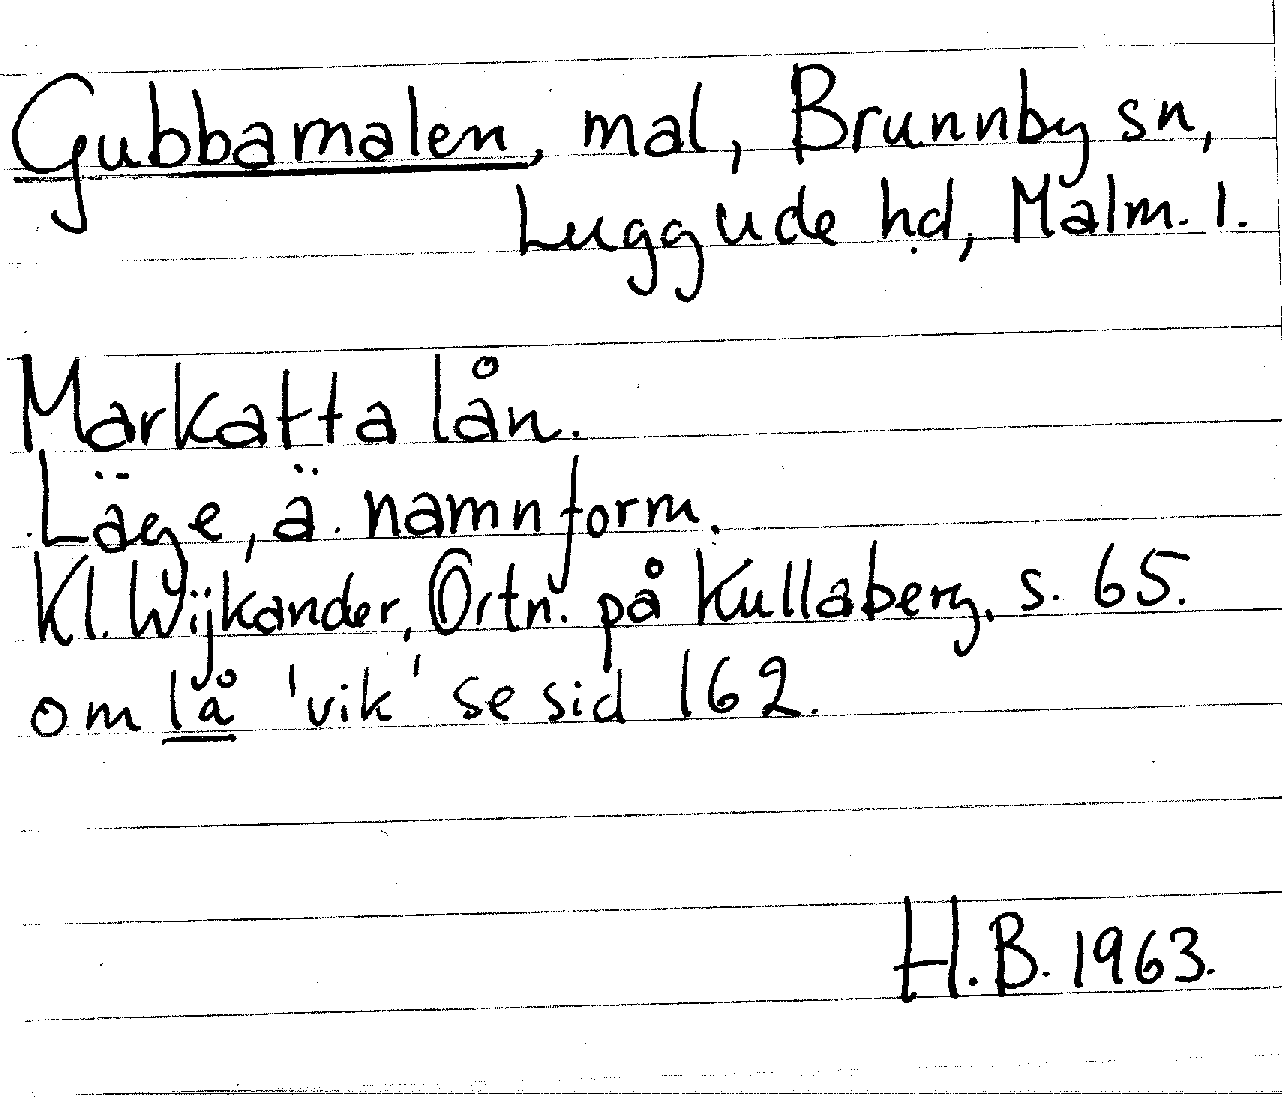 Gubbamalen, mal, Brunnby sn,
Luggude hd, Malm. l.
Markatta lån.
Läge, ä. namnform.
Kl. Wijkander, Ortn. på Kullaberg, s. 65.
om lå 'vik' se sid 162.
H.B. 1963.